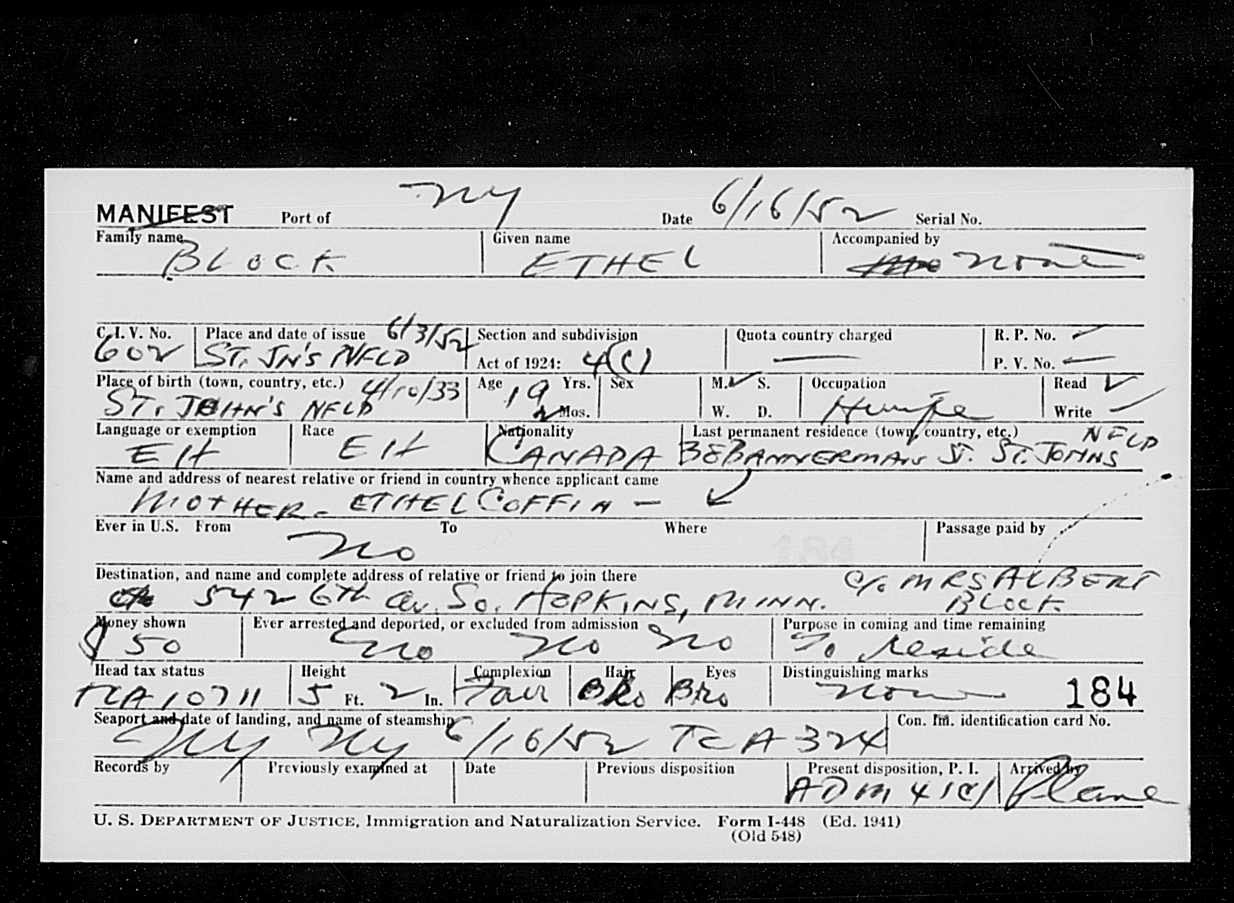 NY 6/16/52
MANIFEST Port of Date Serial No.
Family name Given name Accompanied by
BLOCK ETHEL none
C.I.V. No. Place and date of issue 6/3/52 Section and subdivision Quota country charged R. P. No.
602 ST. JN'S NFLD Act of 1924: 4(C) — P. V. No.
Place of birth (town, country, etc.) 4/10/33 Age 19 Yrs. Sex M. ✓ S. Occupation Read ✓
ST. JOHN'S NFLD 2 Mos. W. D. Write ✓
Language or exemption Race Nationality Last permanent residence (town, country, etc.) NFLD
EH EH CANADA BANNERMAN ST. ST. JOHNS
Name and address of nearest relative or friend in country whence applicant came
MOTHER - ETHEL COFFIN —
Ever in U.S. From To Where Passage paid by
No
Destination, and name and complete address of relative or friend to join there c/o MRS ALBERT
542 6th Av. So. HOPKINS, MINN. BLOCK
Money shown Ever arrested and deported, or excluded from admission Purpose in coming and time remaining
$50 No No No To reside
Head tax status Height Complexion Hair Eyes Distinguishing marks
TCA 10711 5 Ft. 2 In. Fair Bro Bro none 184
Seaport and date of landing, and name of steamship Con. Im. identification card No.
NY NY 6/16/52 TCA 324
Records by Previously examined at Date Previous disposition Present disposition, P. I. Arrived by
ADM 4(C) Plane
U. S. DEPARTMENT OF JUSTICE, Immigration and Naturalization Service. Form I-448 (Ed. 1941)
(Old 548)